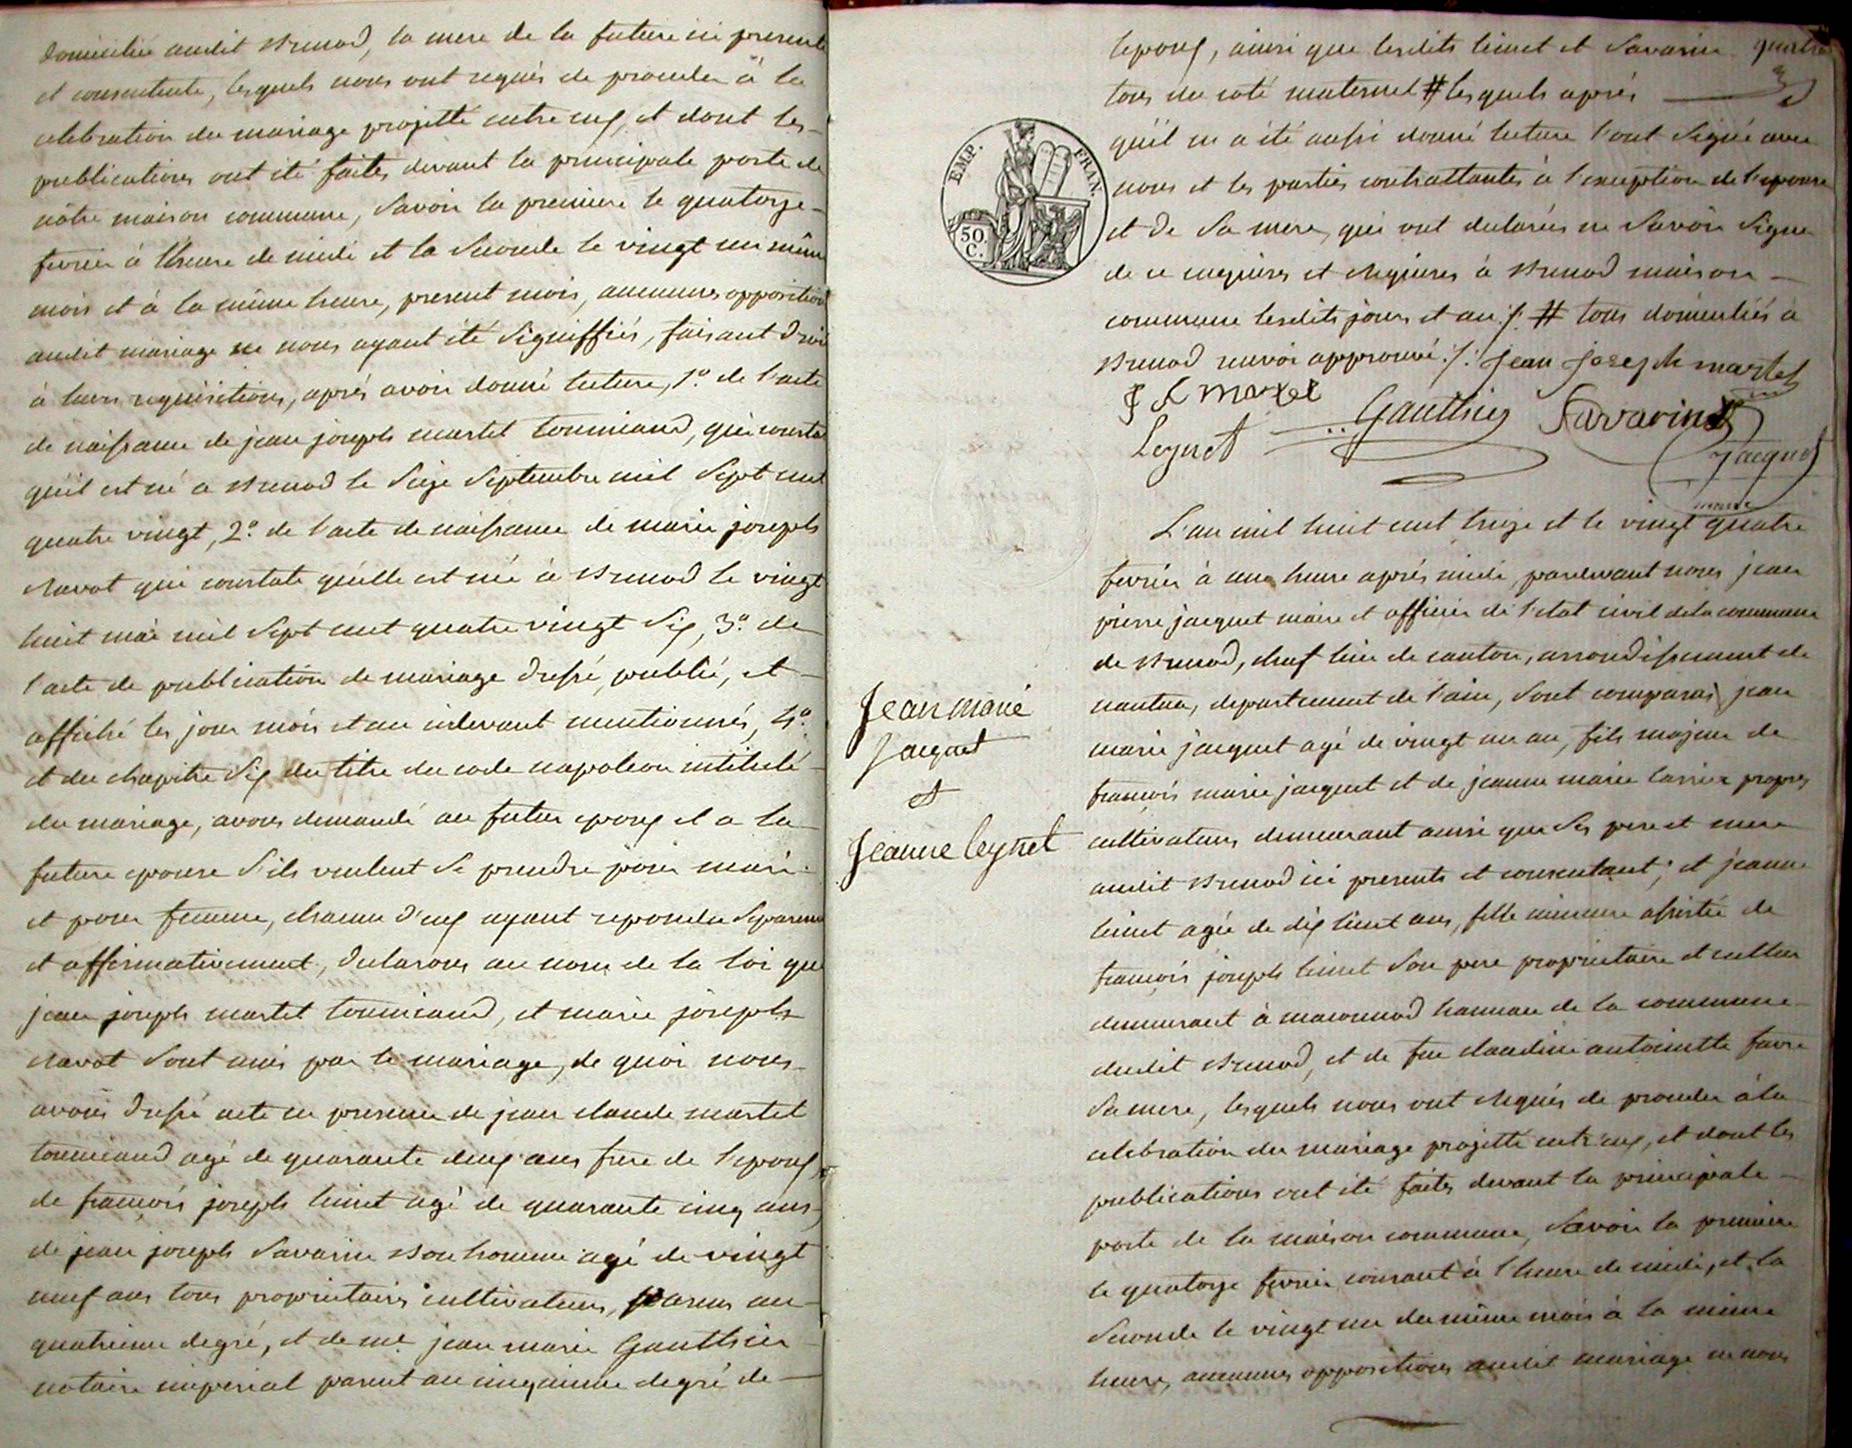 domiciliée audit Brenod, la mere de la future ici presente
et consentente, lesquels nous ont requis de proceder à la
celebration du mariage projetté entre eux, et dont les
publications ont été faites devant la principale porte de
nôtre maison commune, Savoir la premiere le quatorze
fevrier à l'heure de midi et la Seconde le vingt un même
mois et à la même heure, present mois, aucunes opposition
audit mariage ne nous ayant été Signiffiés, faisant droit
à leurs requisitions, aprés avoir donné lecture, 1º. de l'acte
de naissance de jean joseph martel tourniand, qui constate
qu'il est né a Brenod le Seize Septembre mil Sept cent
quatre vingt, 2º. de l'acte de naissance de marie joseph
chavot qui constate quélle est née à Brenod le vingt
huit mai mil Sept cent quatre vingt Six, 3º. de
l'acte de publication de mariage dressé, publié, et
affiché les jour mois et an cidevant mentionnés, 4º.
et du chapitre Six du titre du code napoleon intitulé
du mariage, avons demandé au futur epoux et a la
future epouse S'ils veulent Se prendre pour mari
et pour femme, chacun d'eux ayant repondu Séparement
et affirmativement, declarons au nom de la loi que
jean joseph martel tourniand, et marie joseph
chavot Sont unis par le mariage, de quoi nous
avons dressé acte en presence de jean claude martel
tourniand agé de quarante deux ans frere de l'epoux,
de françois joseph leinet agé de quarante cinq ans,
de jean joseph Savarin Bonhomme agé de vingt
neuf ans tous proprietaires cultivateurs, parens au
quatrieme degré, et de me. jean marie Gauthier
notaire imperial parent au cinquieme degré de
lepoux, ainsi que lesdits leinet et Savarin quatre
tous du coté maternel # lesquels aprés
qu'il en a été aussi donné lecture l'ont Signé avec
nous et les parties contrattantes à l'exception de l'epouse
et de Sa mere, qui ont declarées ne Savoir Signer
de ce enquises et requises à Brenod maison
commune lesdits jours et an ./. # tous domiciliés à
Brenod renvoi approuvé ./. jean joseph martel
EMP. FRAN.
50. C.
J C martel
Gauthier Savarin
Leynet
Jacquet
maire
L'an mil huit cent treize et le vingt quatre
fevrier à une heure aprés midi, pardevant nous jean
pierre jacquet maire et officier de l'etat civil de la commune
de Brenod, chef lieu de canton, arrondissement de
nantua, departement de l'ain, Sont comparus jean
marie jacquet agé de vingt un an, fils majeur de
françois marie jacquet et de jeanne marie carrier propres
cultivateurs demeurant ainsi que Ses pere et mere
audit Brenod ici presents et consentant; et jeanne
leinet agée de dix huit ans, fille mineure assistée de
françois joseph leinet Son pere proprietaire et cultivr
demeurant à maconnod hameau de la commune
dudit Brenod, et de feu claudine antoinette favre
Sa mere, lesquels nous ont requis de proceder à la
celebration du mariage projetté entr'eux, et dont les
publications ont été faites devant la principale
porte de la maison commune, Savoir la premiere
le quatorze fevrier courant à l'heure de midi, et la
Seconde le vingt un du même mois à la même
heure, aucunes oppositions audit mariage ne nous
Jean marie
Jacquet
et
Jeanne leynet